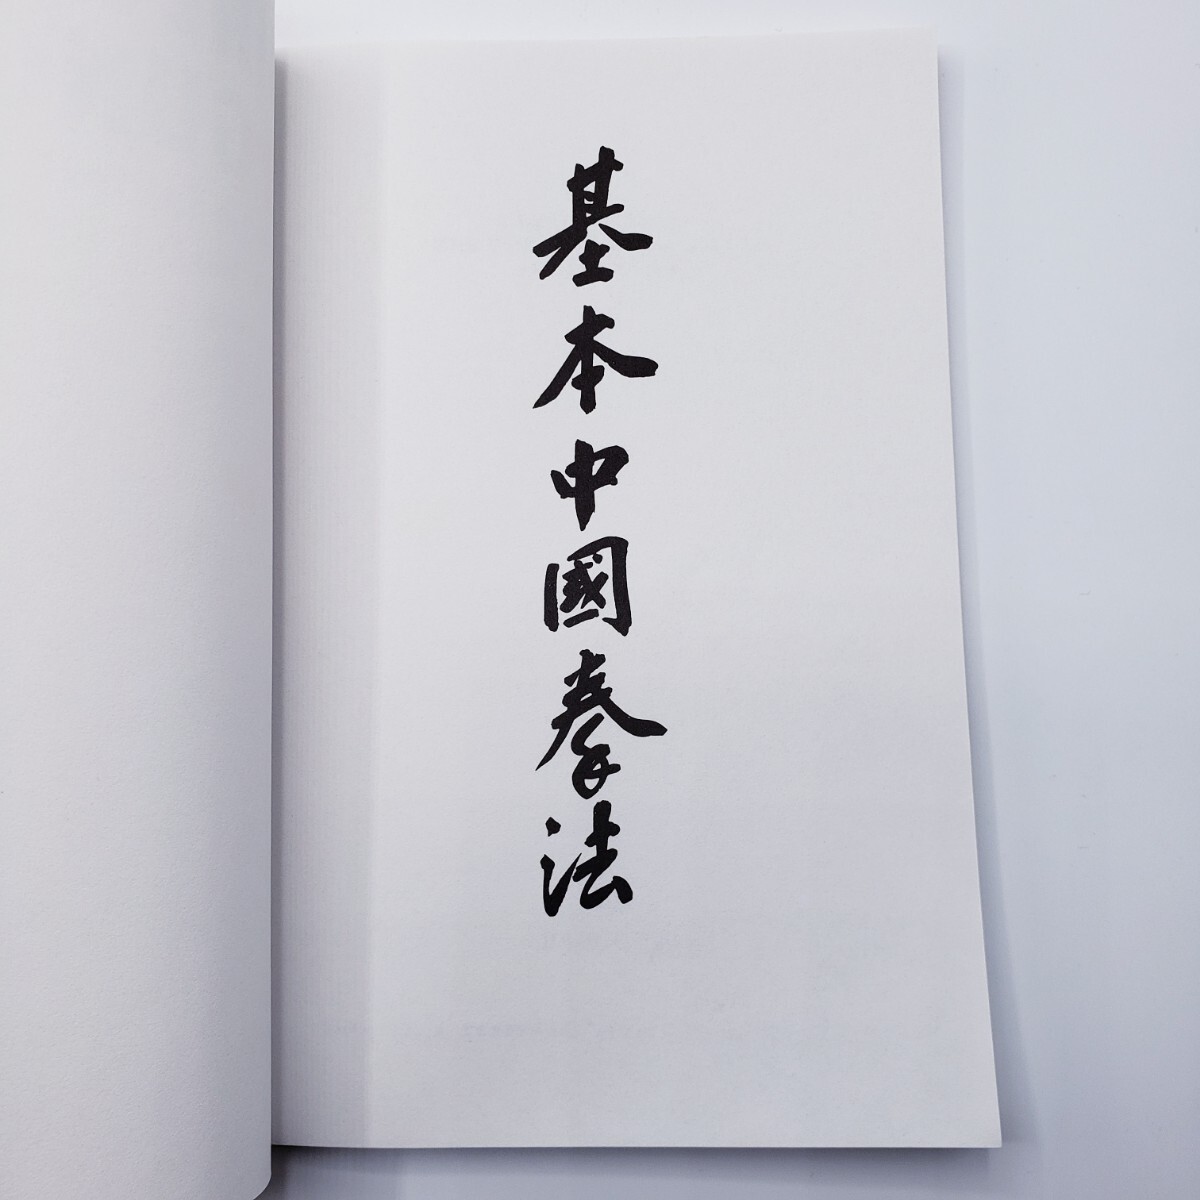 基本中國拳法